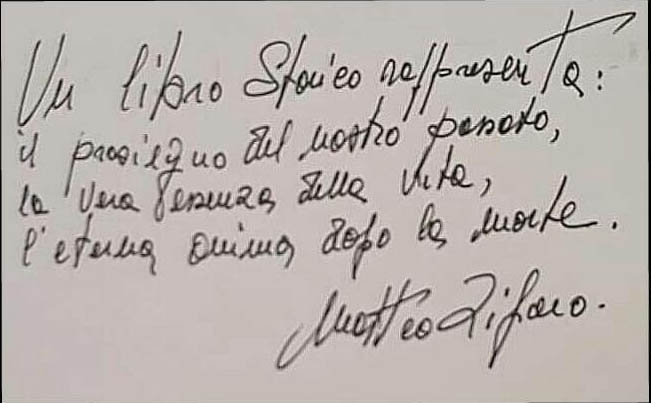 Un libro Storico rappresenta:
il prosieguo del nostro passato,
la vera essenza della vita,
l'eterna anima dopo la morte.
Matteo